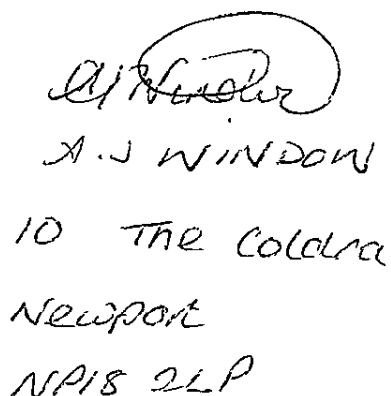 AJ Window
A.J WINDOW
10 The Coldra
Newport
NP18 2LP